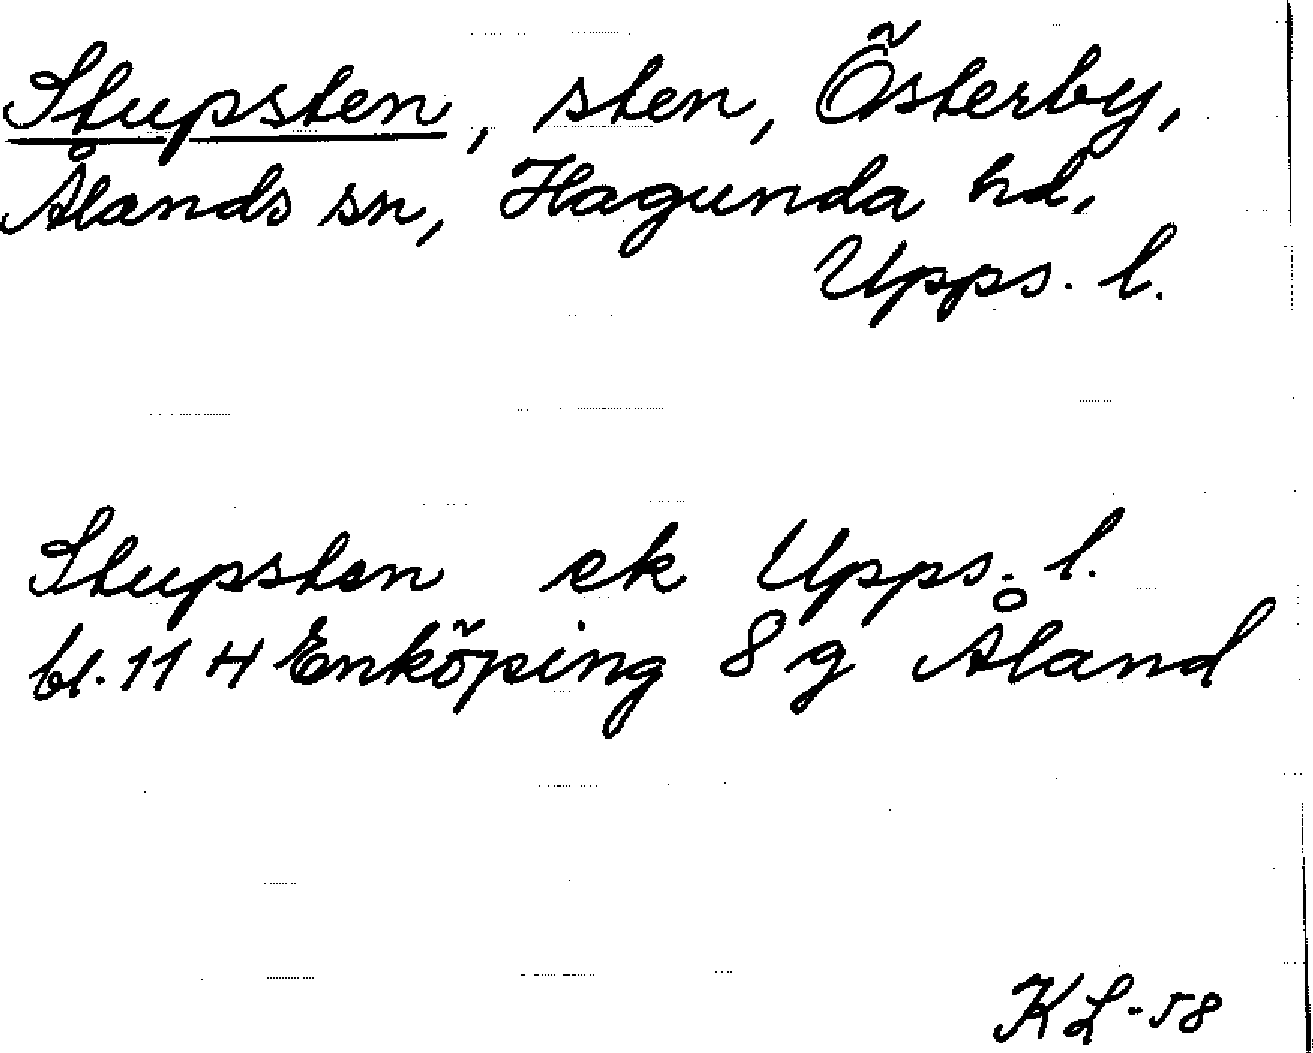 Stupsten, sten, Österby,
Ålands sn, Hagunda hd,
Upps. l.
Stupsten ek Upps. l.
bl. 11 H Enköping 8 g Åland
KL-58